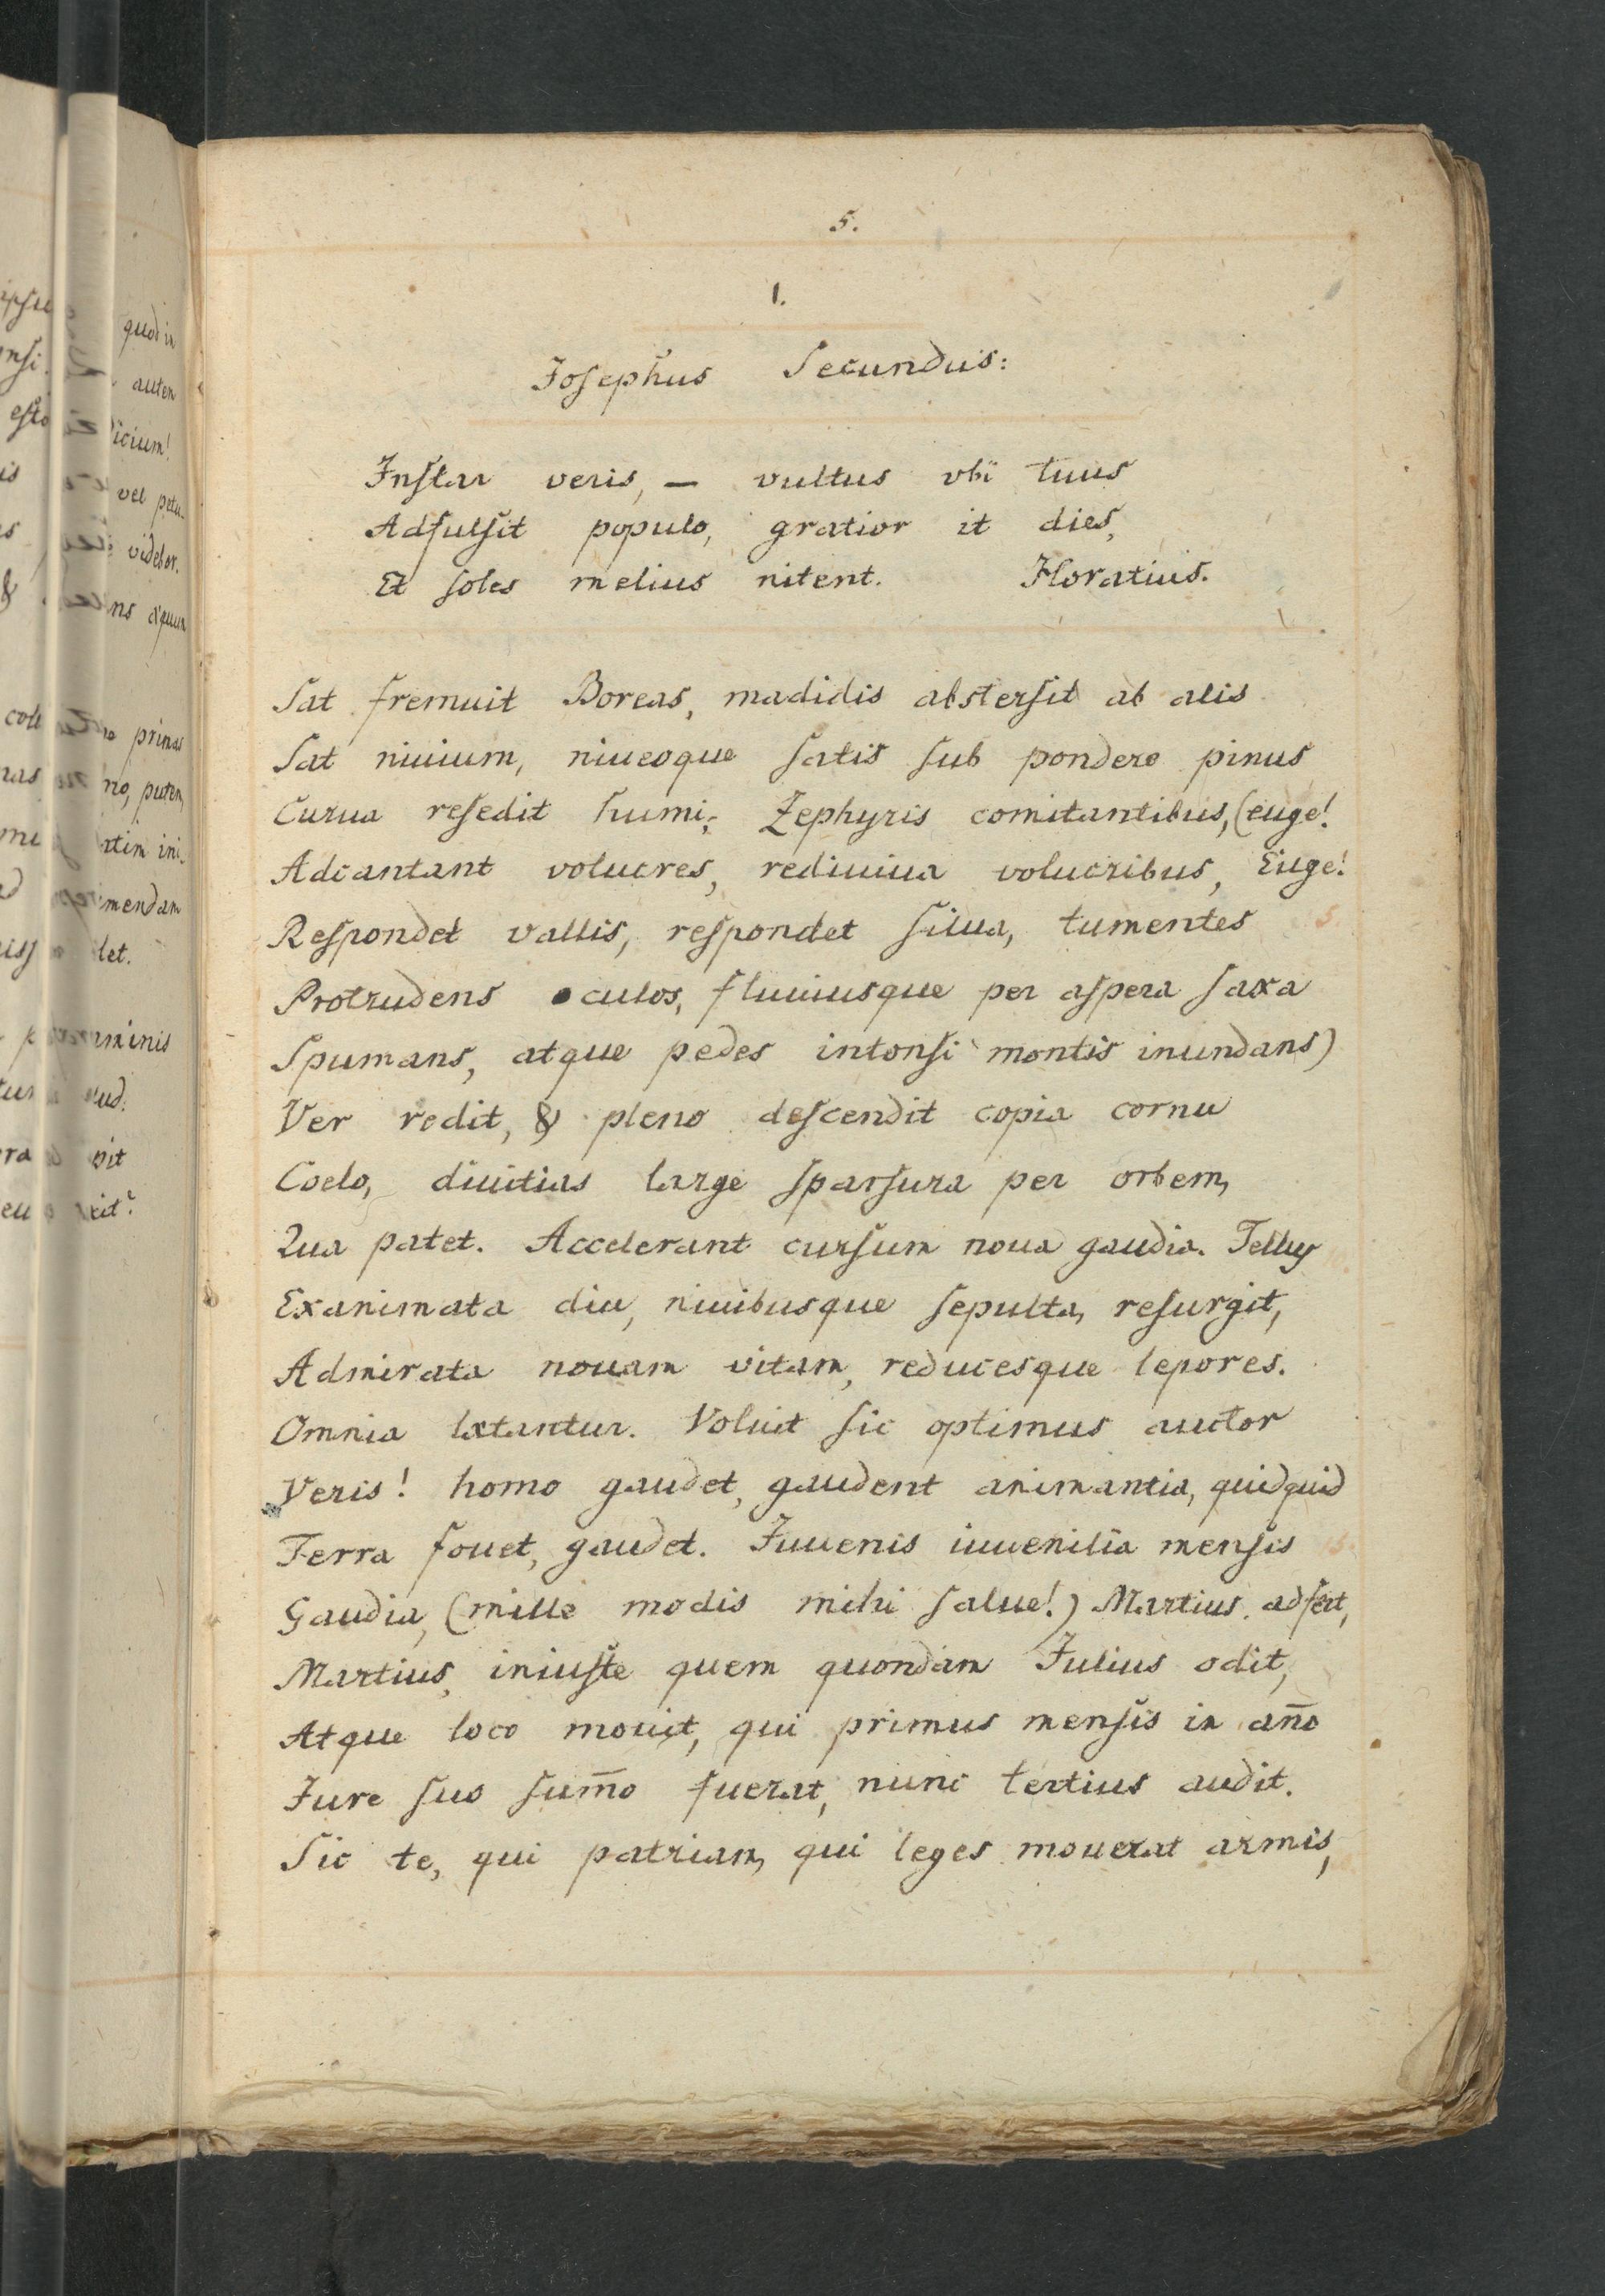 5.
1.
Josephus Secundus:
Instar veris, — vultus vbi tuus
Adfulsit populo, gratior it dies,
Et soles melius nitent. Horatius.
Sat fremuit Boreas, madidis abstersit ab alis
Sat niuium, niueoque satis sub pondere pinus
Curua resedit humi; Zephyris comitantibus, (euge!
Adcantant volucres, rediuiua volucribus, Euge!
Respondet vallis, respondet silua, tumentes 5.
Protrudens oculos, fluuiusque per aspera saxa
Spumans, atque pedes intonsi montis inundans)
Ver redit, & pleno descendit copia cornu
Coelo, diuitias large sparsura per orbem,
Qua patet. Accelerant cursum noua gaudia. Tellus 10.
Exanimata diu, niuibusque sepulta, resurgit,
Admirata nouam vitam, reducesque lepores.
Omnia lætantur. Voluit sic optimus auctor
Veris! homo gaudet, gaudent animantia, quidquid
Terra fouet, gaudet. Juuenis iuuenilia mensis 15.
Gaudia, (mille modis mihi salue!) Martius adfert,
Martius, iniuste quem quondam Julius odit,
Atque loco mouit, qui primus mensis in an̄o
Jure suo sum̄o fuerat, nunc tertius audit.
Sic te, qui patriam, qui leges mouerat armis,
quod in
autem
dicium!
vel petu-
videtor.